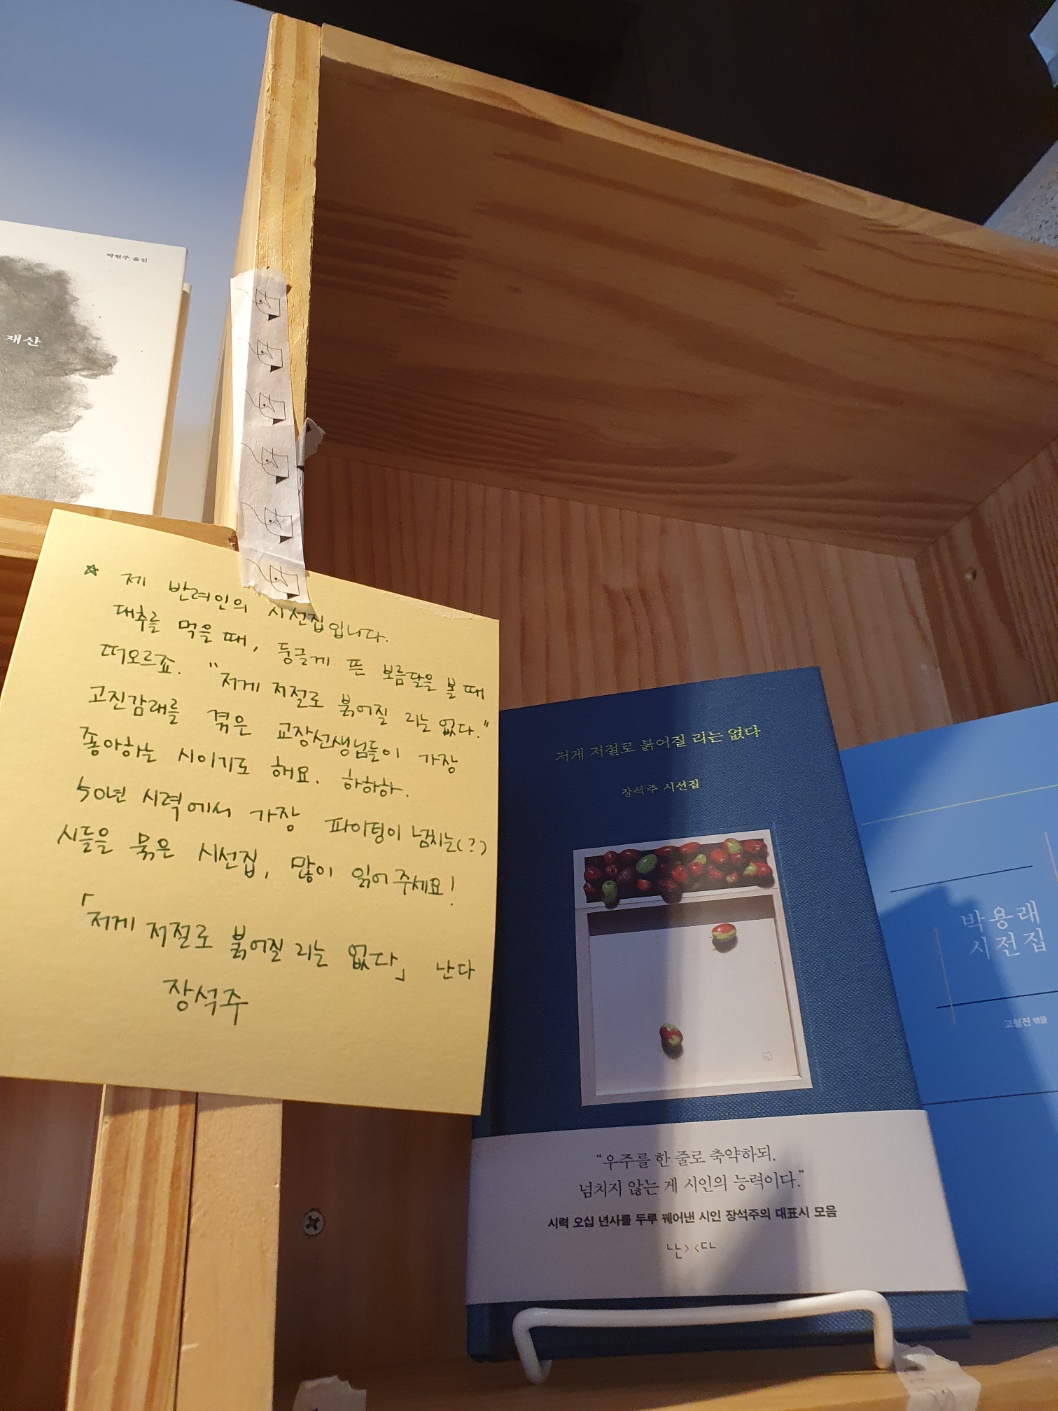 박현주 옮김
재산
☆ 제 반려인의 시선집입니다.
대추를 먹을 때, 둥글게 뜬 보름달을 볼 때
떠오르죠. "저게 저절로 붉어질 리는 없다."
고진감래를 겪은 교장선생님들이 가장
좋아하는 시이기도 해요. 하하하.
50년 시력에서 가장 파이팅이 넘치는(?)
시들을 묶은 시선집, 많이 읽어주세요!
「저게 저절로 붉어질 리는 없다」 난다
장석주
저게 저절로 붉어질 리는 없다
장석주 시선집
"우주를 한 줄로 축약하되,
넘치지 않는 게 시인의 능력이다."
시력 오십 년사를 두루 꿰어낸 시인 장석주의 대표시 모음
난다
박용래
시전집
고형진 엮음